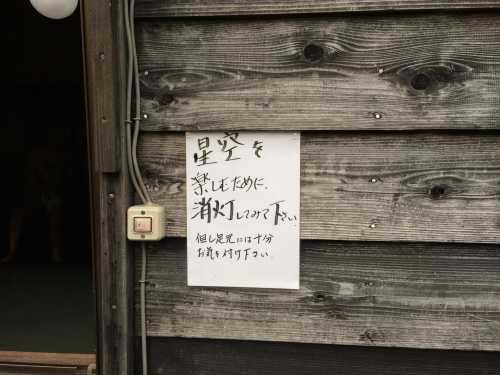 星空を
楽しむために、
消灯してみて下さい。
但し足元には十分
お気を付け下さい。